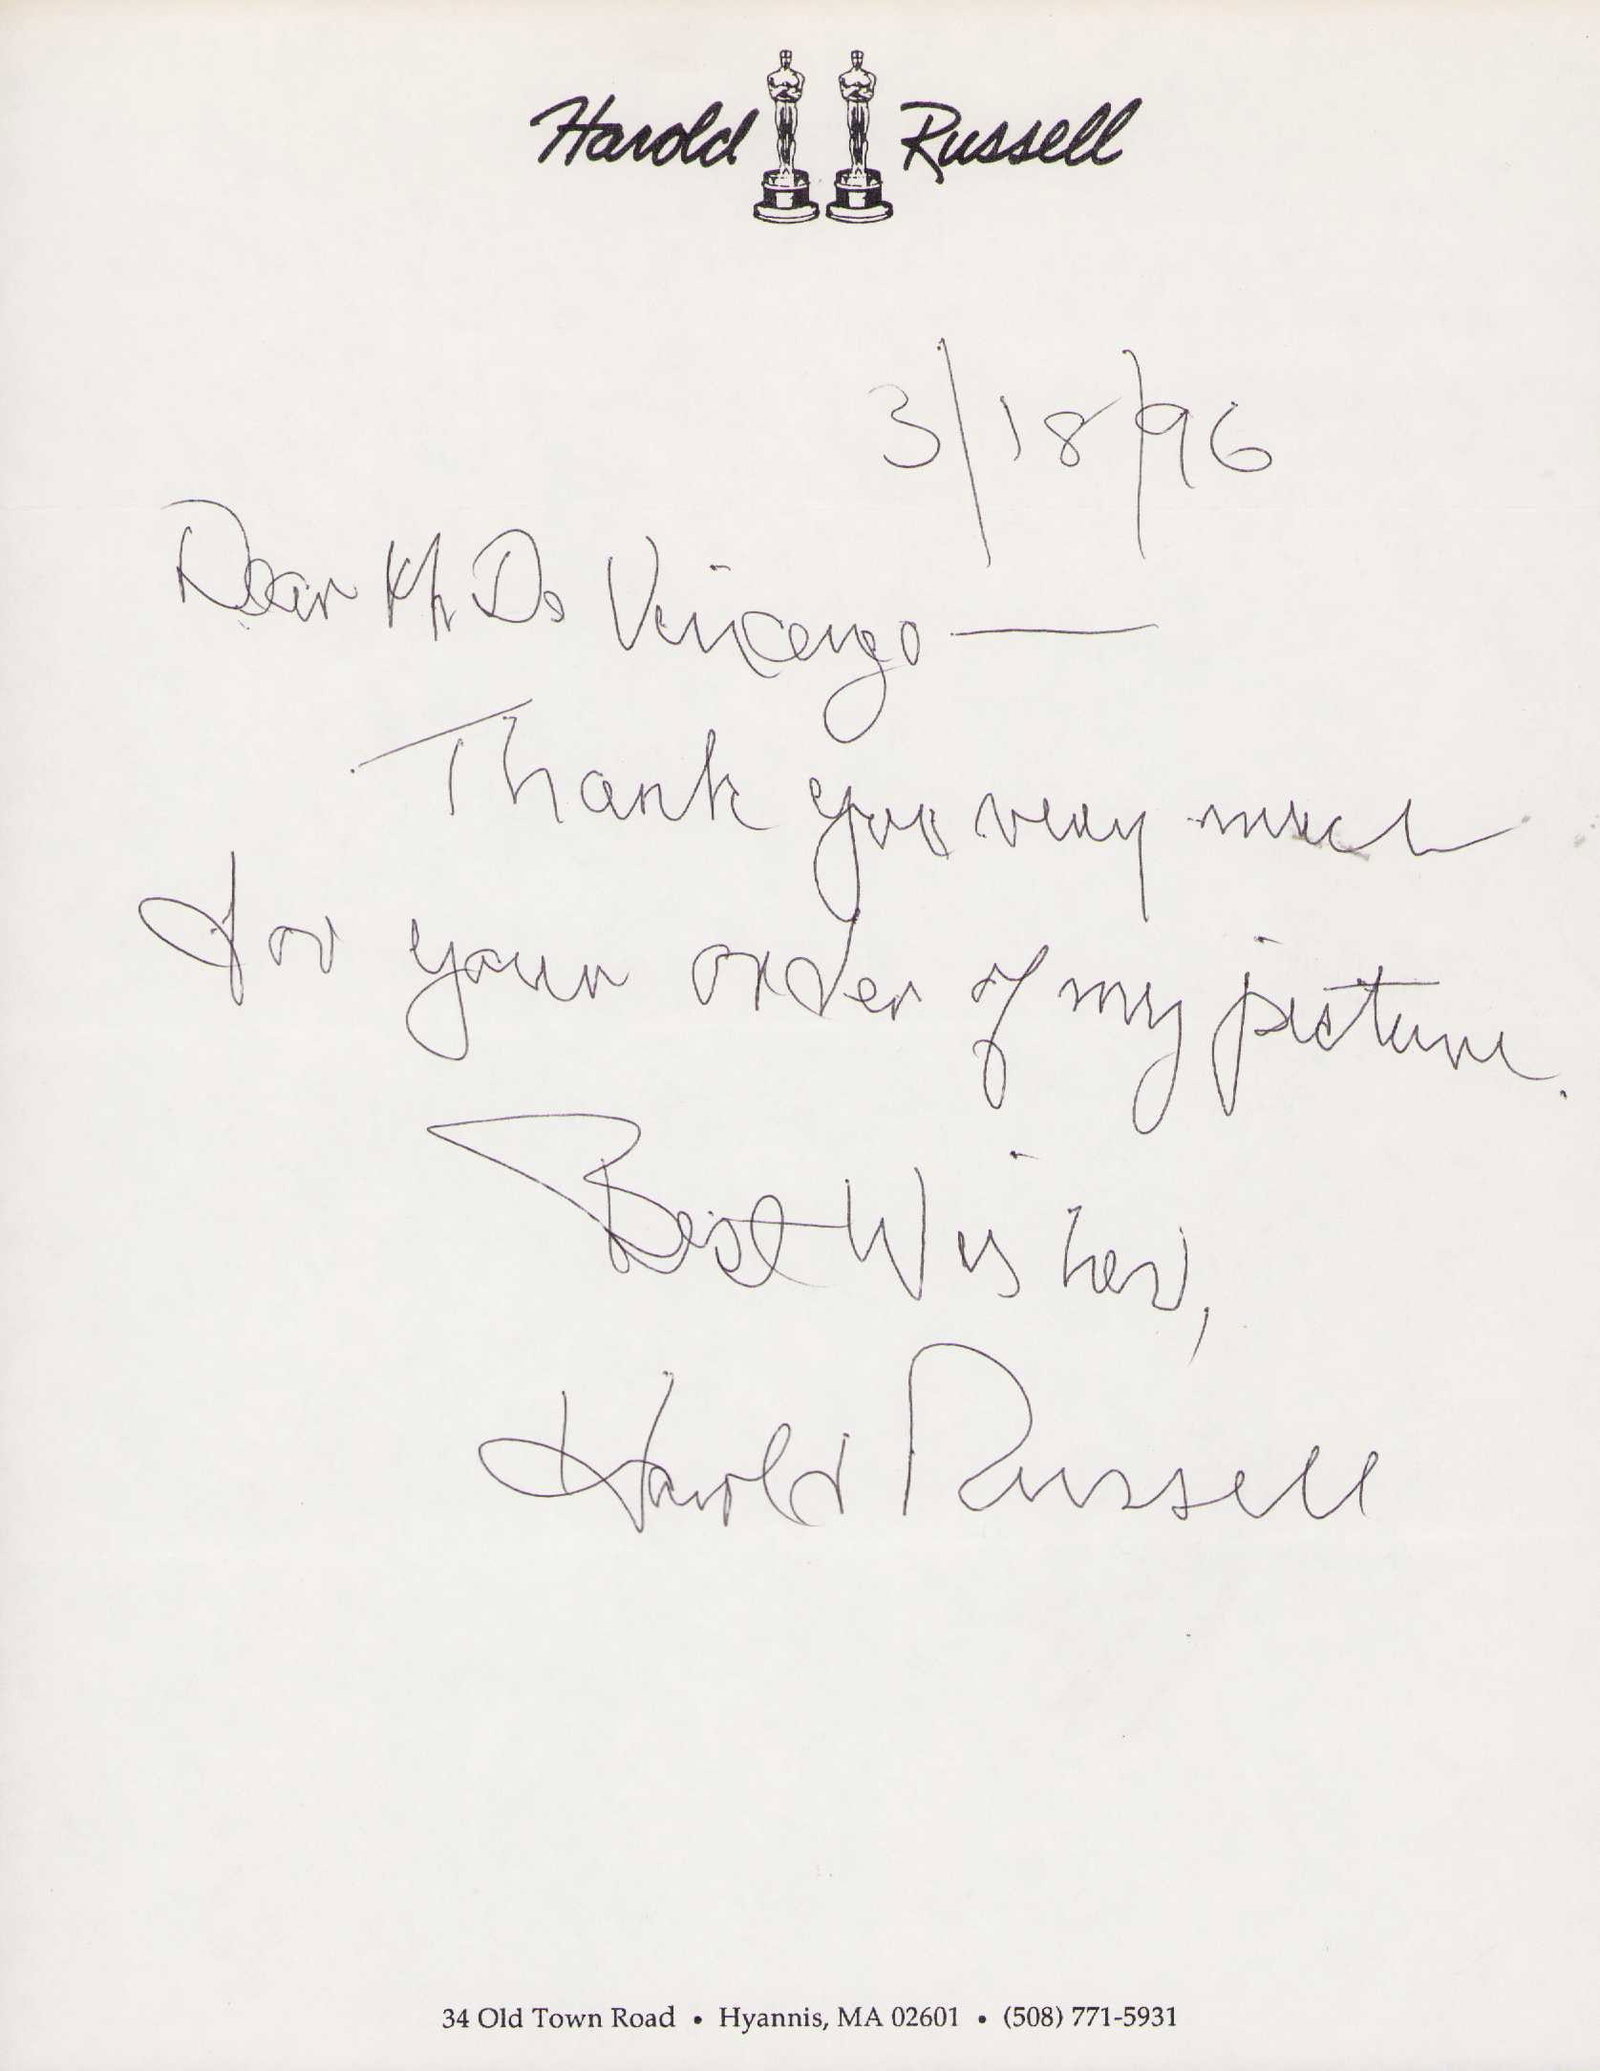 Harold Russell
3/18/96
Dear Mr De Vincenzo —
Thank you very much
for your order of my picture.
Best Wishes,
Harold Russell
34 Old Town Road • Hyannis, MA 02601 • (508) 771-5931